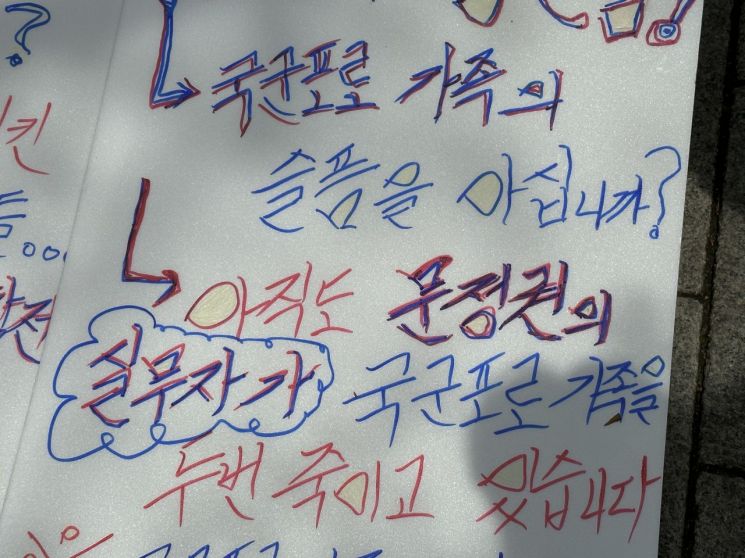 국군포로 가족의
슬픔을 아십니까?
아직도 문정권의
실무자가 국군포로 가족을
두번 죽이고 있습니다